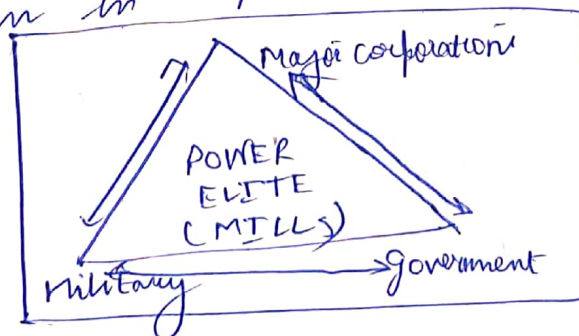 Major corporation
POWER
ELITE
(MILLS)
Military
Government